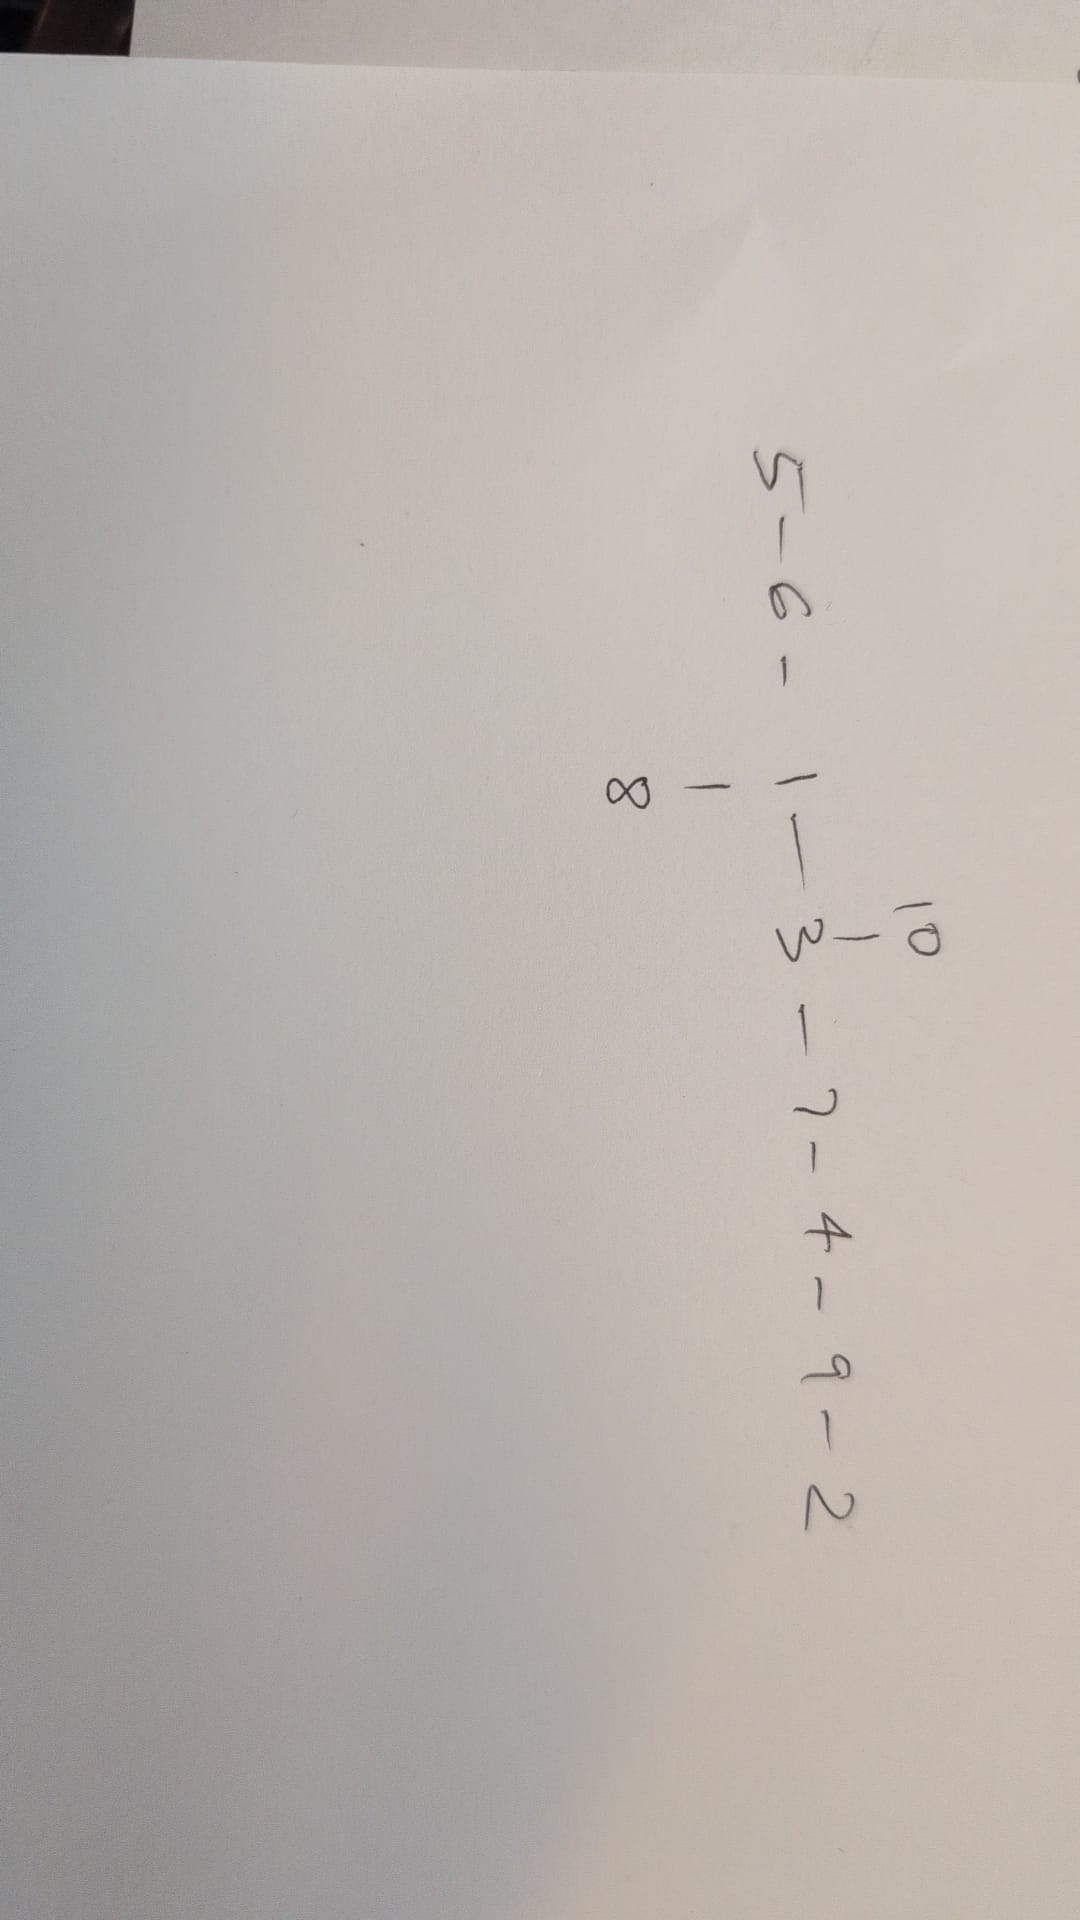 10
|
5 - 6 - 1 - 3 - 7 - 4 - 9 - 2
|
8